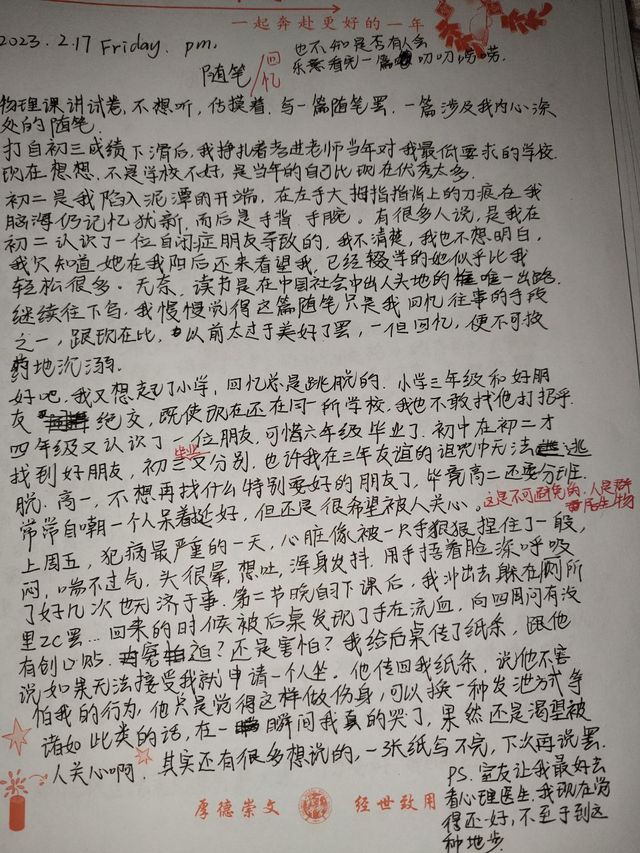 一起奔赴更好的一年
2023.2.17 Friday. pm.
也不知是否有人会
乐意看完一篇叨叨唠唠.
随笔/回忆
物理课讲试卷,不想听,估摸着.写一篇随笔罢.一篇涉及我内心深
处的随笔.
打自初三成绩下滑后,我挣扎着考进老师当年对我最低要求的学校.
现在想想,不是学校不好,是当年的自己比现在优秀太多.
初二是我陷入泥潭的开端,在左手大拇指指背上的刀痕在我
脑海仍记忆犹新,而后是手背、手腕。有很多人说,是我在
初二认识了一位自闭症朋友导致的,我不清楚,我也不想明白,
我只知道她在我阳后还来看望我,已经辍学的她似乎比我
轻松很多。无奈,读书是在中国社会中出人头地的唯一出路.
继续往下写,我慢慢觉得这篇随笔只是我回忆往事的手段
之一,跟现在比,以前太过于美好了罢,一但回忆,便不可救
药地沉溺.
好吧,我又想起了小学,回忆总是跳脱的.小学三年级和好朋
友绝交,既使现在还在同一所学校,我也不敢找他打招乎.
四年级又认识了一位朋友,可惜六年级毕业了.初中在初二才
找到好朋友,初三毕业又分别,也许我在三年友谊的诅咒中无法逃
脱.高一,不想再找什么特别要好的朋友了,毕竟高二还要分班.
常常自嘲一个人呆着挺好,但还是很希望被人关心。这是不可避免的.人是群居生物
上周五,犯病最严重的一天,心脏像被一只手狠狠捏住了一般,
闷,喘不过气,头很晕,想吐,浑身发抖.用手捂着脸深呼吸
了好几次也无济于事.第二节晚自习下课后,我冲出去躲在厕所
里zc罢...回来的时候被后桌发现了手在流血,向四周问有没
有创口贴.窘迫?还是害怕?我给后桌传了纸条,跟他
说如果无法接受我就申请一个人坐.他传回我纸条,说他不害
怕我的行为,他只是觉得这样做伤身,可以换一种发泄方式等
诸如此类的话,在一瞬间我真的哭了,果然还是渴望被
人关心啊.其实还有很多想说的,一张纸写不完,下次再说罢.
PS.室友让我最好去
看心理医生,我现在觉
得还好,不至于到这
种地步.
厚德崇文 经世致用